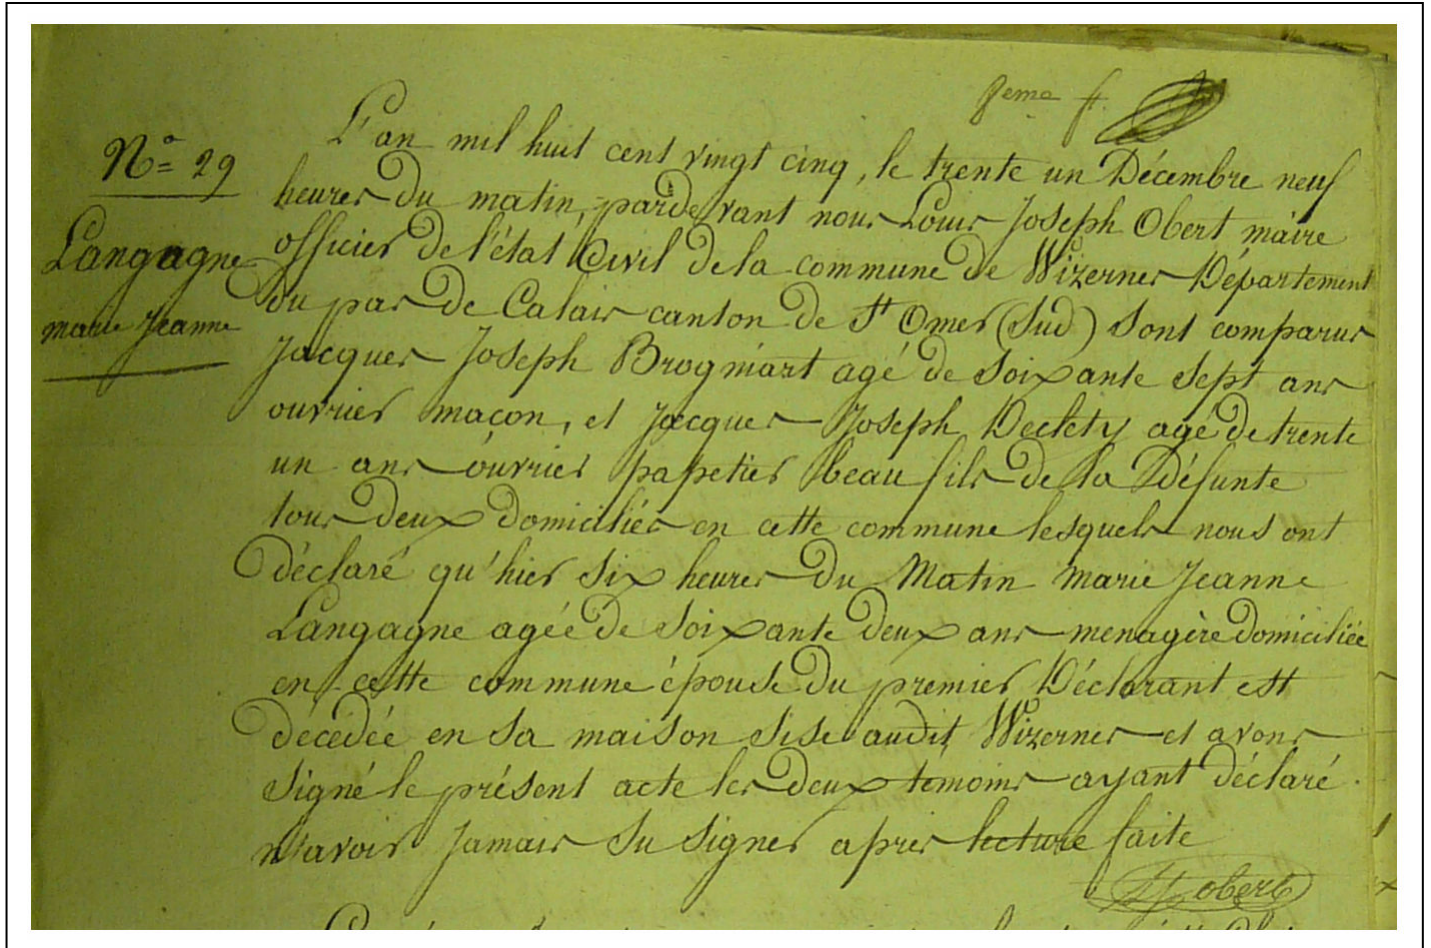 8eme f.
N° 29
Langagne
marie Jeanne
L'an mil huit cent vingt cinq, le trente un Décembre neuf
heures du matin, pardevant nous Louis Joseph Obert maire
officier de l'état Civil de la commune de Wizernes Département
du pas de Calais canton de St Omer (Sud) sont comparus
Jacques Joseph Brogniart agé de soixante sept ans
ouvrier maçon, et Jacques Joseph Decléty agé de trente
un ans ouvrier papetier beau fils de la Défunte
tous deux domiciliés en cette commune lesquels nous ont
déclaré qu'hier six heures du Matin marie Jeanne
Langagne agée de soixante deux ans menagère domiciliée
en cette commune épouse du premier Déclarant est
décédée en sa maison sise audit Wizernes et avons
signé le présent acte les deux témoins ayant déclaré
n'avoir Jamais su signer après lecture faite
LJ obert